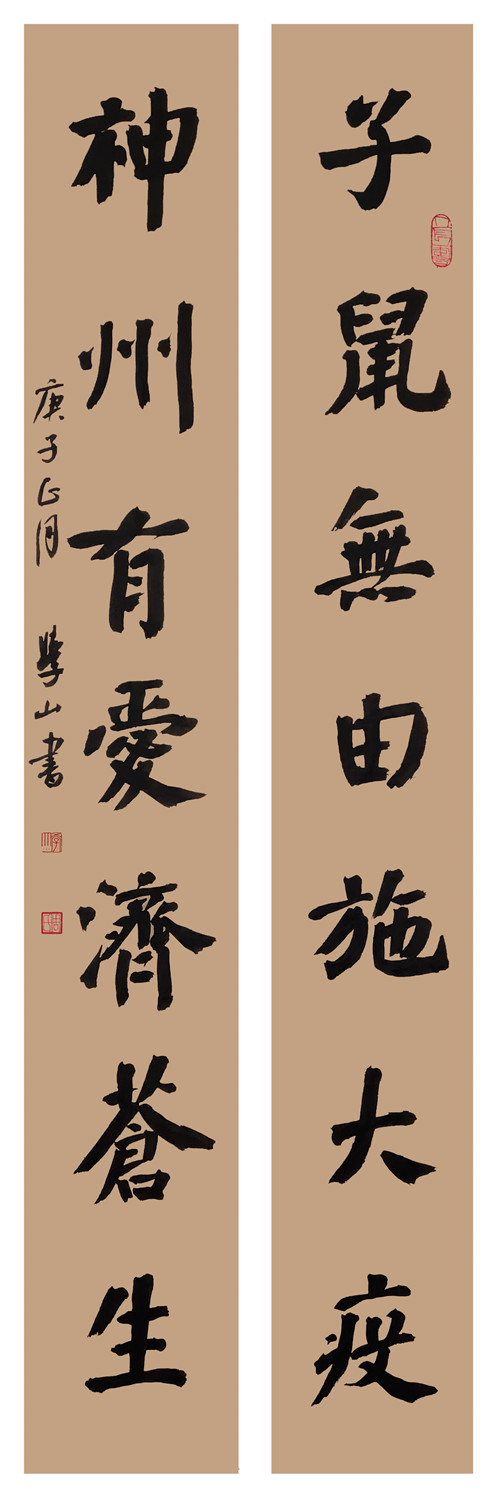 子鼠無由施大疫
神州有愛濟蒼生
庚子正月 學山書